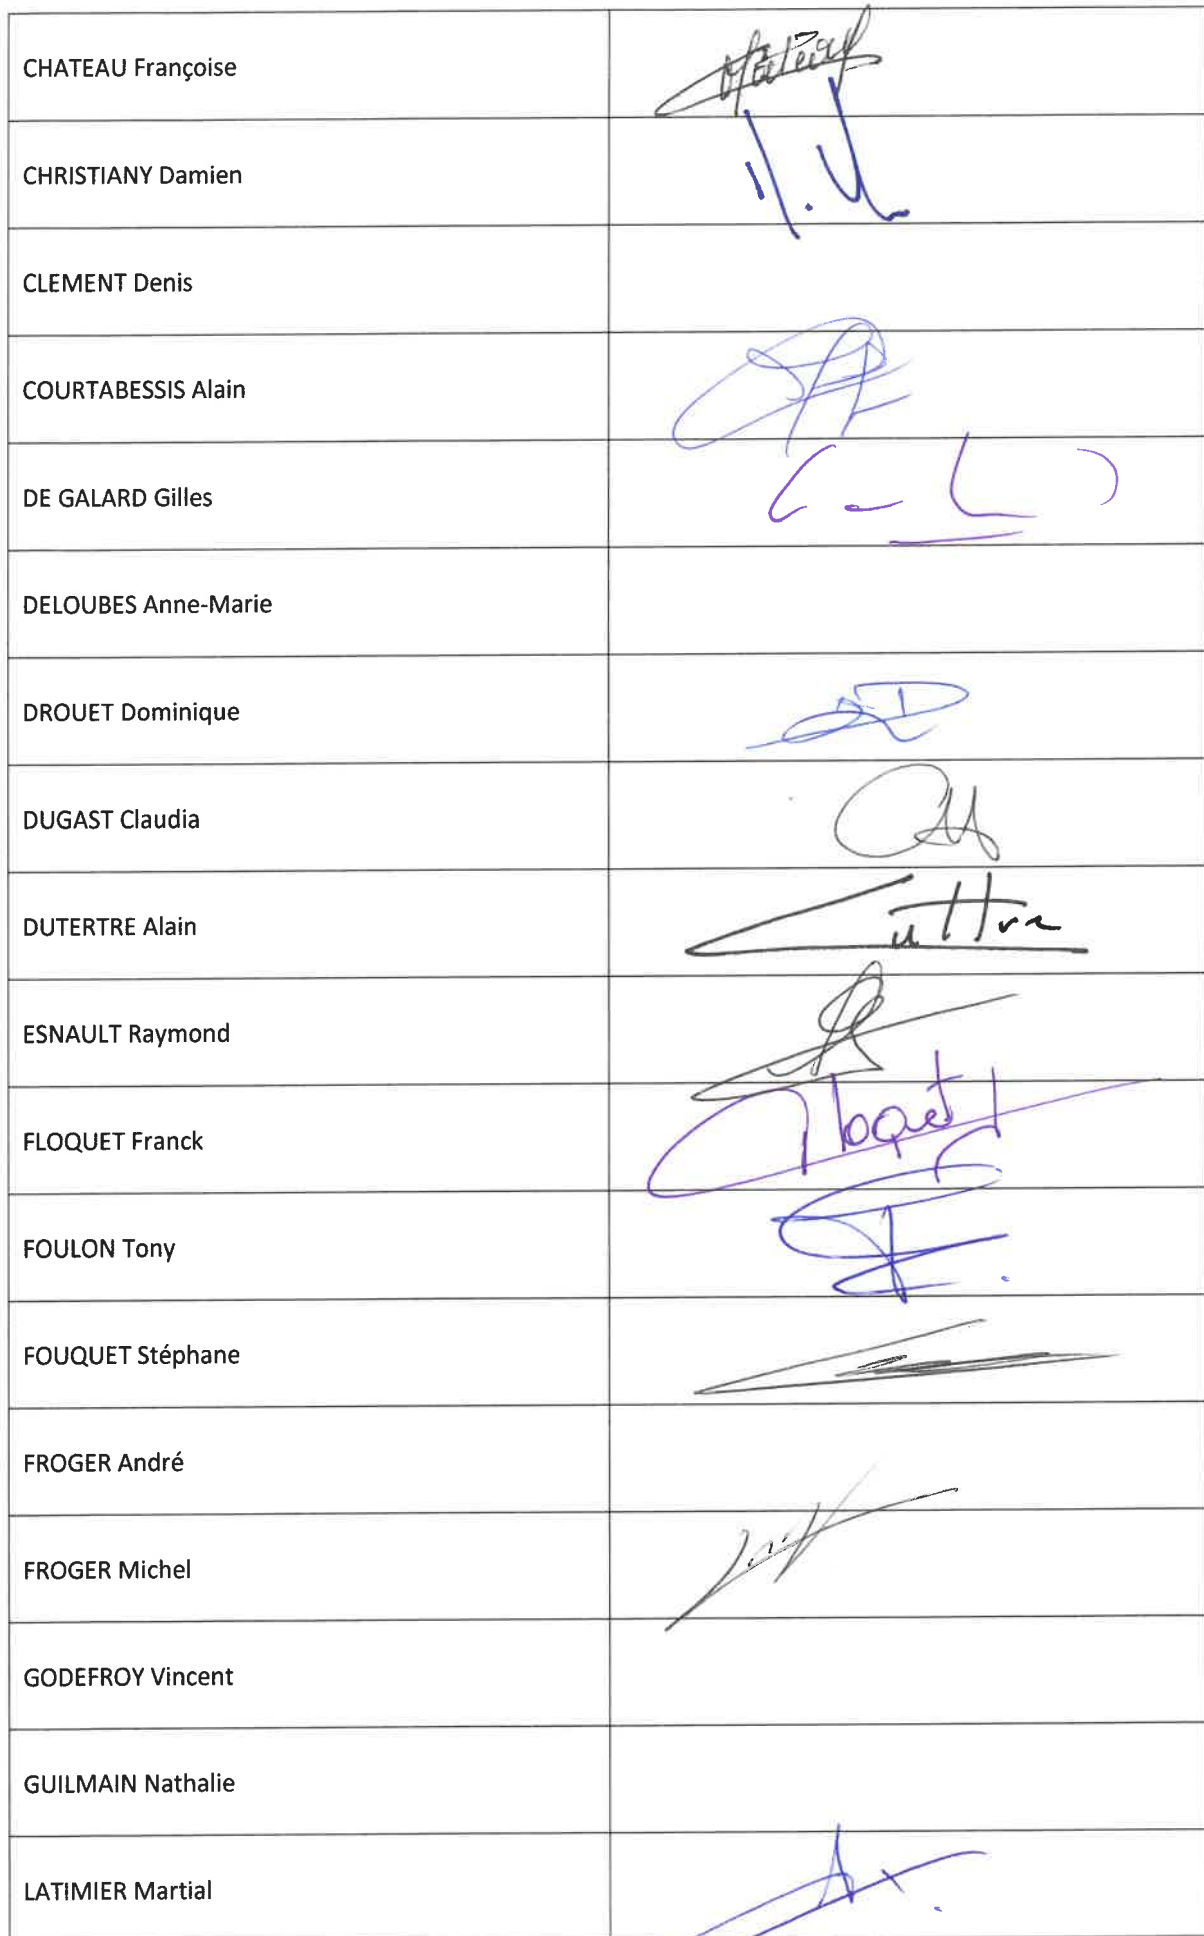 CHATEAU Françoise
CHRISTIANY Damien
CLEMENT Denis
COURTABESSIS Alain
DE GALARD Gilles
DELOUBES Anne-Marie
DROUET Dominique
DUGAST Claudia
DUTERTRE Alain
ESNAULT Raymond
FLOQUET Franck
Floquet
FOULON Tony
FOUQUET Stéphane
FROGER André
FROGER Michel
GODEFROY Vincent
GUILMAIN Nathalie
LATIMIER Martial